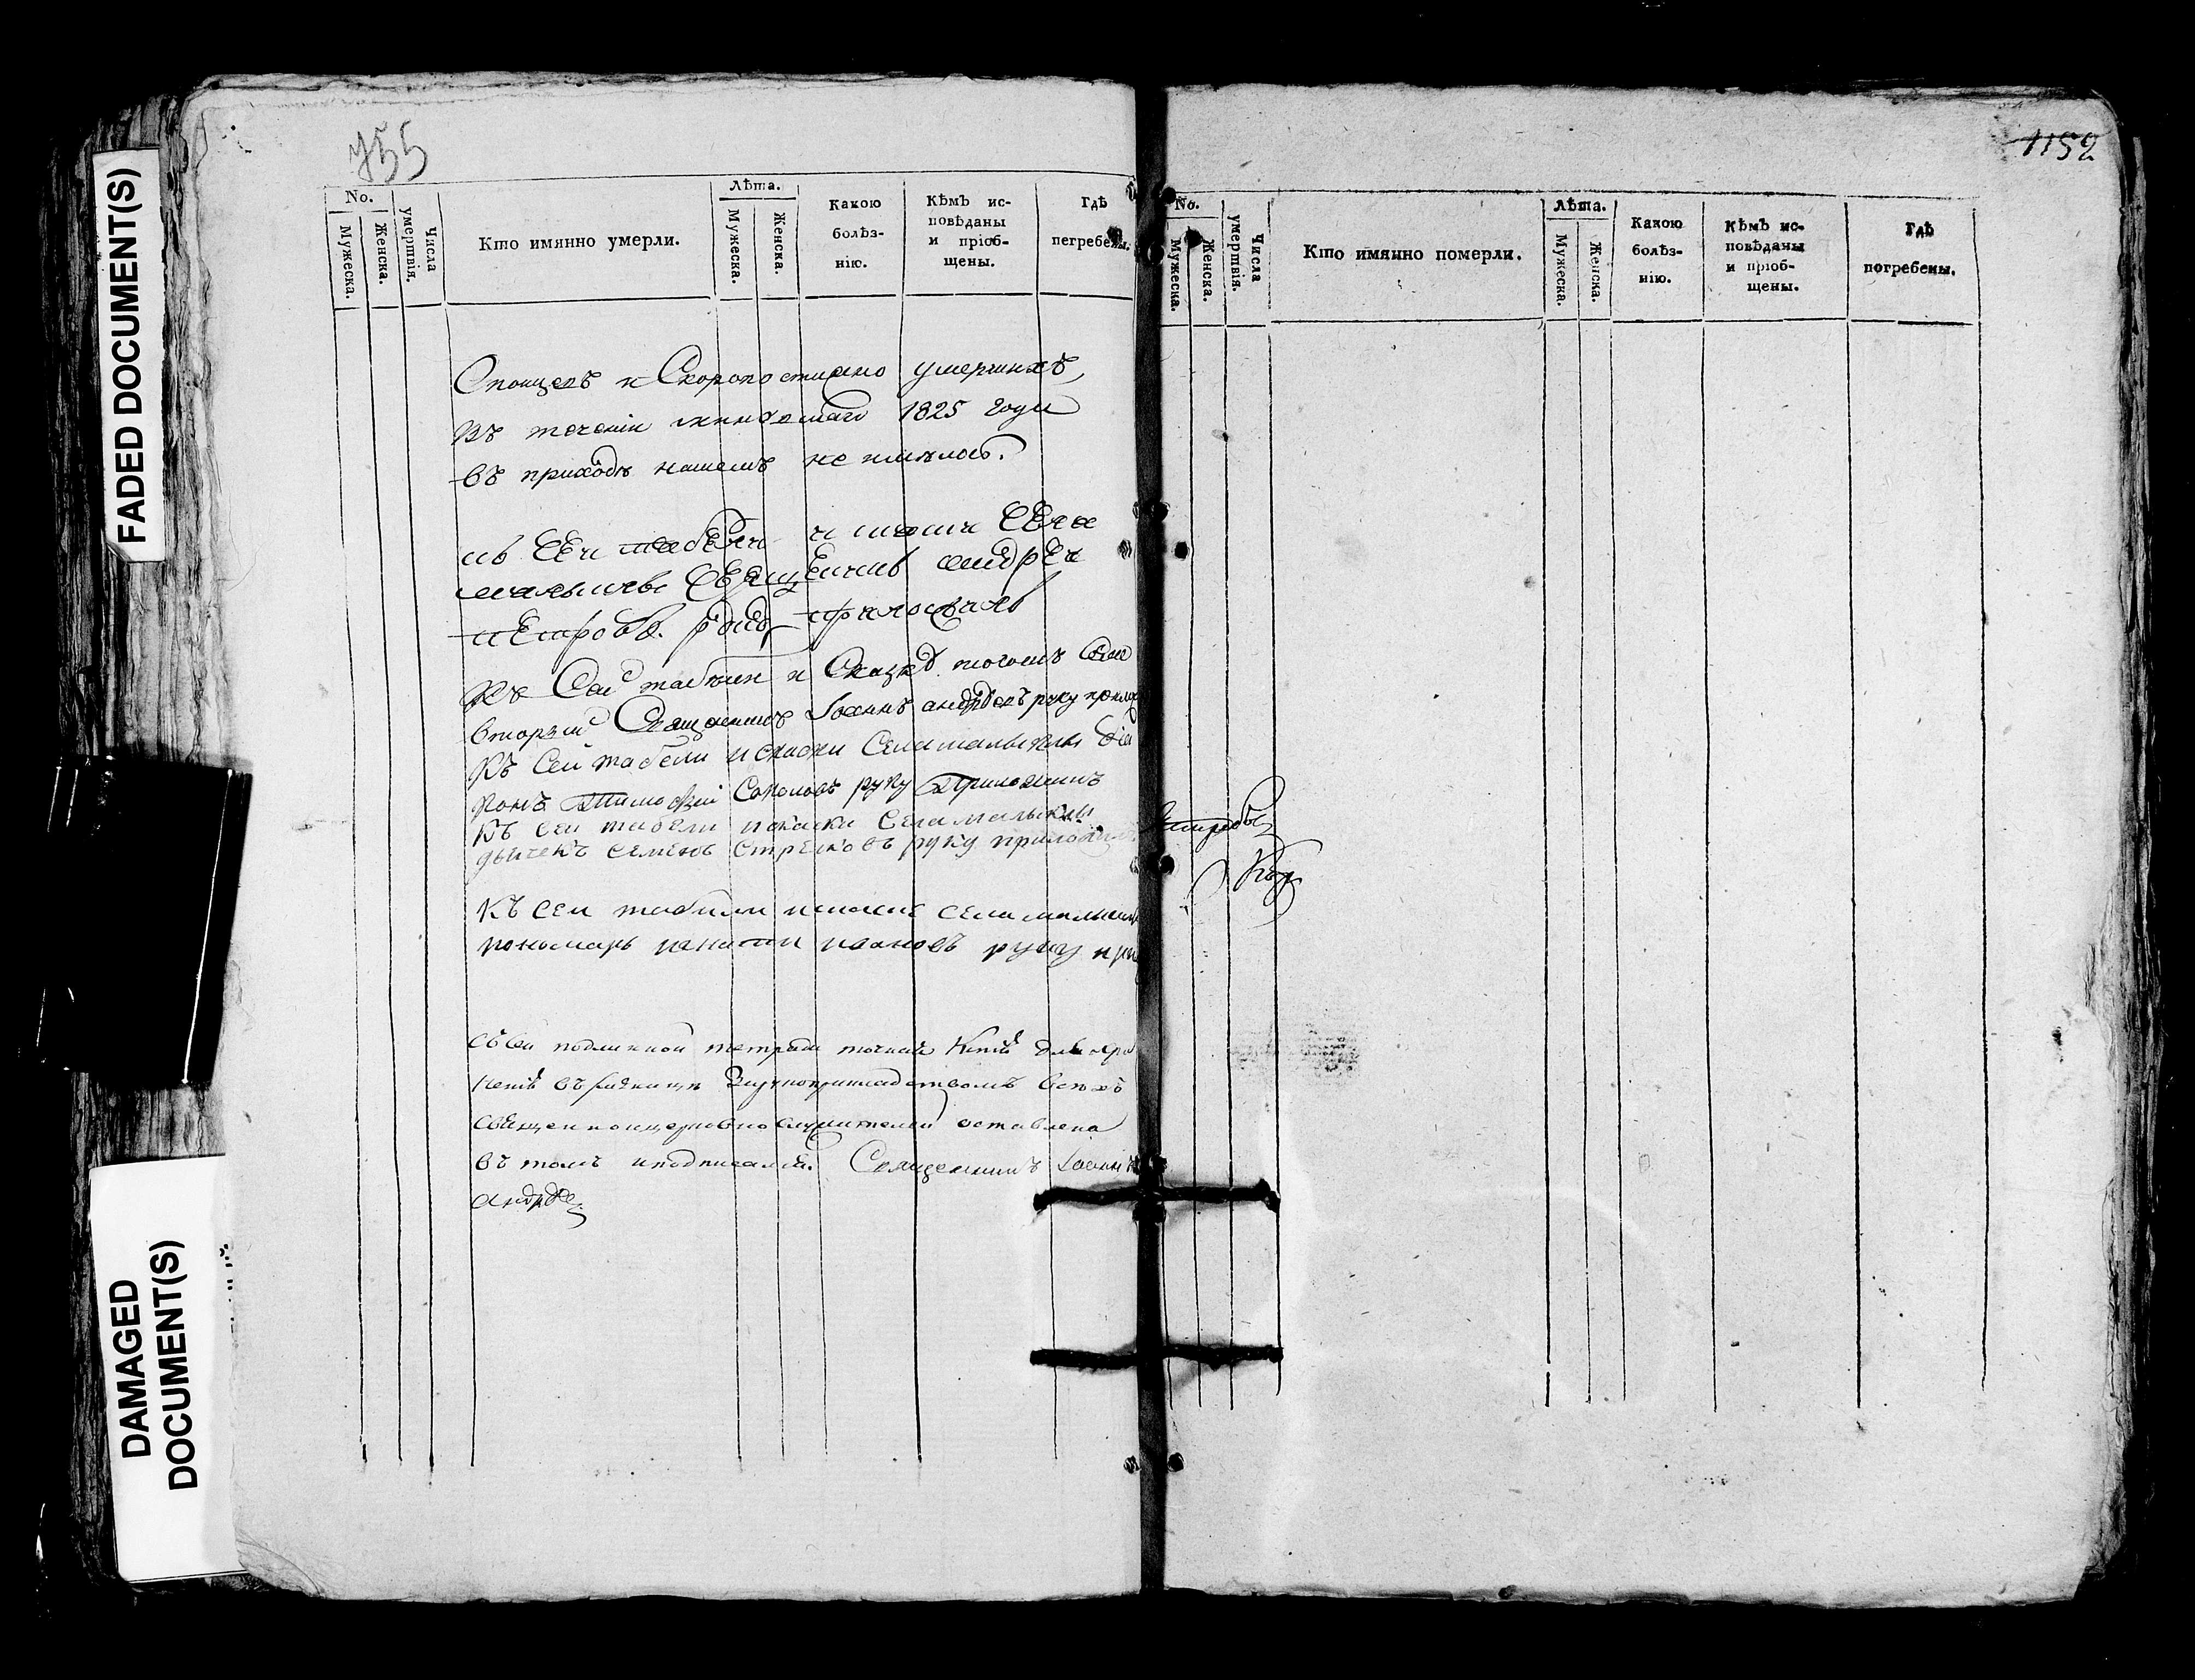 FADED DOCUMENT(S)
DAMAGED
DOCUMENT(S)
755
No.
Мужеска.
Женска.
Числа умертвія.
Кто имянно умерли.
Лѣта.
Мужеска.
Женска.
Какою
болѣз-
нію.
Кѣмъ ис-
повѣданы
и пріоб-
щены.
Гдѣ
погребены.
Опоицевъ и Скоропостижно умершихъ,
въ теченіи 1825 года
въ приходѣ нашемъ не имѣлось.
къ сеи табели и
Священикъ андреи
петровъ руку приложилъ
Къ Сей табели и тогожъ Села
вторый Священникъ Іоаннъ андреевъ руку прилож
Къ Сей табели и скаски Села малыклы діа
конъ Соколовъ руку Приложилъ
Къ сеи табели искаски Села малыклы
дьячекъ семенъ стрелковъ руку приложилъ
Къ сеи табели села
пономарь игнатии ивановъ руку при
Съ сей подлинной тетради точная Копія для хра
ненія въ ризницѣ Зарукоприкладствомъ всѣхъ
священноцерковнослужителей оставлена
въ томъ иподписался. Священникъ Іоаннъ
Андрѣе
1152
No.
Мужеска.
Женска.
Числа умертвія.
Кто имянно померли.
Лѣта.
Мужеска.
Женска.
Какою
болѣз-
нію.
Кѣмъ ис-
повѣданы
и пріоб-
щены.
Гдѣ
погребены.